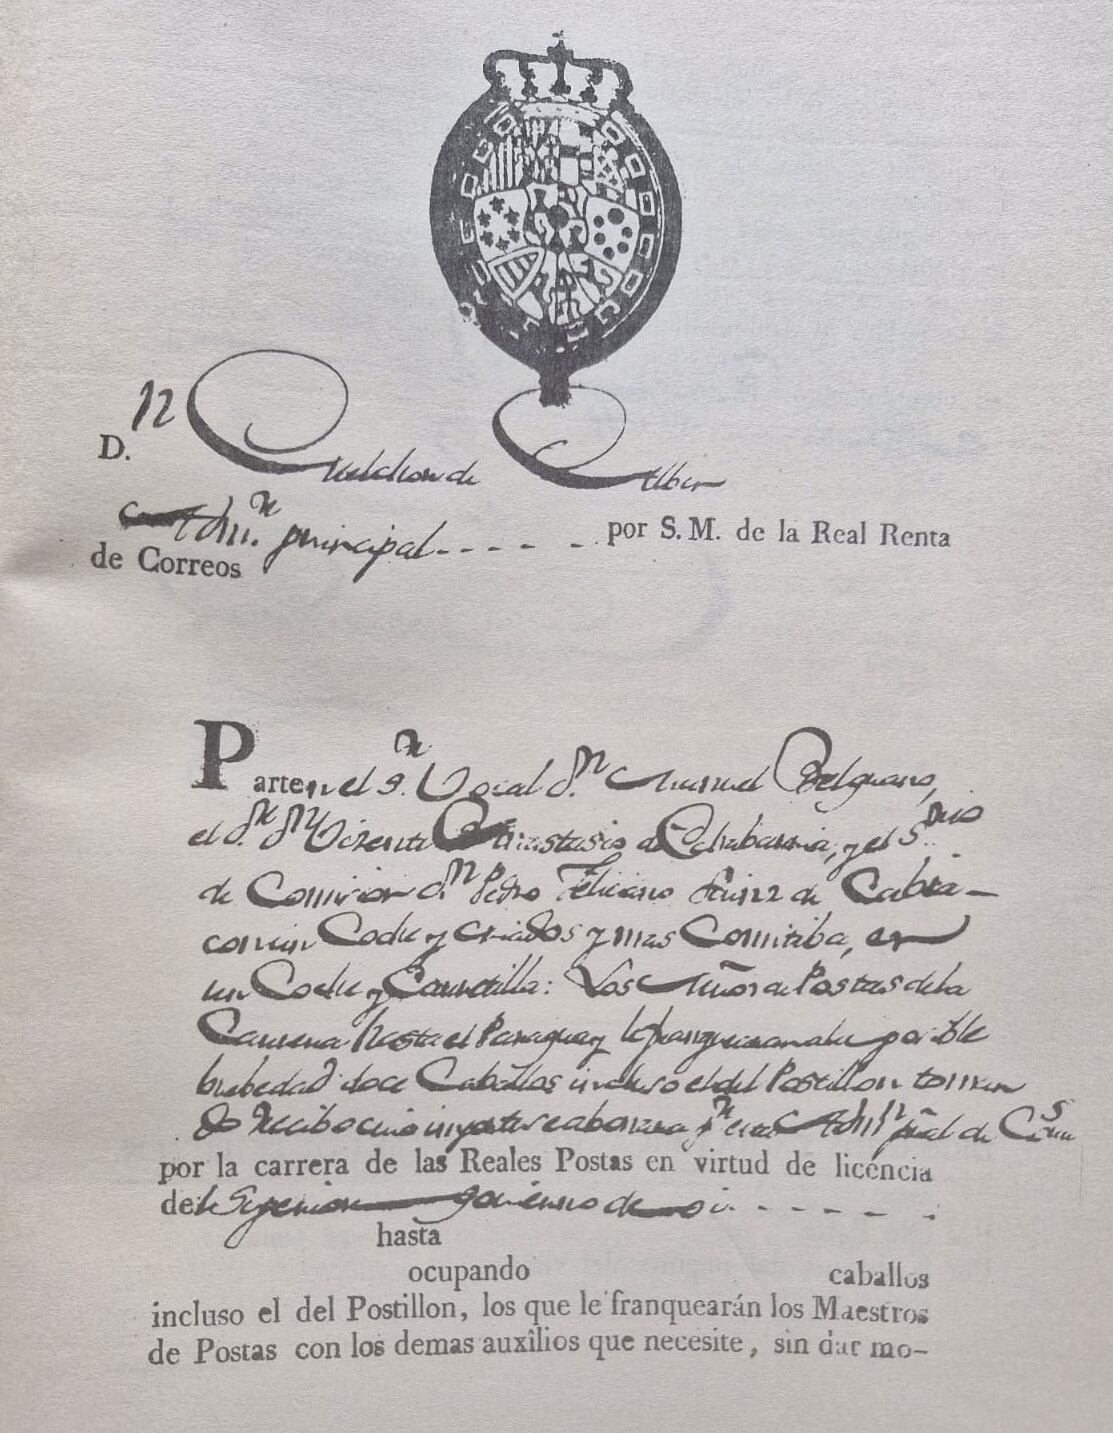 D.n Melchor de Alber
Adm.n principal - - - - - por S. M. de la Real Renta
de Correos
Parten el S.r Vocal d.n Manuel Belgrano,
el d.r d.n Vizente Anastasio de Echabarria, y el S.rio
de Comision d.n Pedro Feliciano Sainz de Cabia-
con un Coche y criados y mas Comitiba, en
un Coche y Carretilla: Los Mñros de Postas de la
Carrera hasta el Paraguay le franquearan ala posible
brebedad doce Caballos incluso el del Postillon toman
do Recibo cuio importe se abonara p.r esta Adm.n pral de Corr.s
por la carrera de las Reales Postas en virtud de licencia
del Superior govierno de
hasta
ocupando caballos
incluso el del Postillon, los que le franquearán los Maestros
de Postas con los demas auxîlios que necesite, sin dar mo-